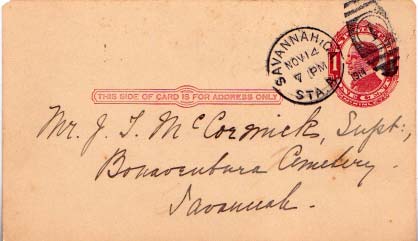 SAVANNAH, G
NOV 14
7 PM
STA. A.
1
THIS SIDE OF CARD IS FOR ADDRESS ONLY
Mr. J. T. McCormicks, Supt.,
Bonaventura Cemetery.
Savannah.